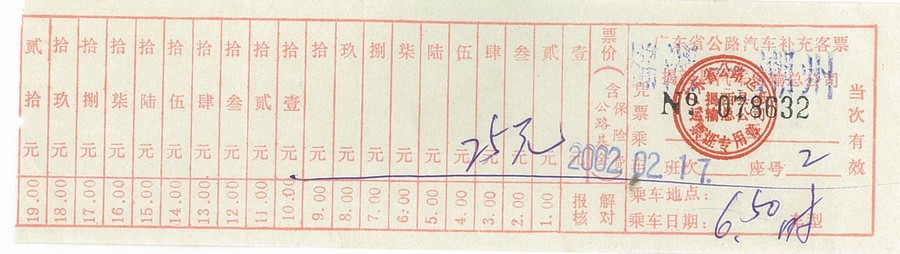 广东省公路汽车补充客票
揭 输总公司
潮州
№ 078632
当次有效
广东省公路运
揭
运输总公司
票证专用章
凭票乘
2002.02.17.
班次 座号 2
乘车地点:
乘车日期: 6.50时 车型
票价(含保险 公路
壹 贰 叁 肆 伍 陆 柒 捌 玖 拾 拾 拾 拾 拾 拾 拾 拾 拾 贰
壹 贰 叁 肆 伍 陆 柒 捌 玖 拾
元 元 元 元 元 元 元 元 元 元 元 元 元 元 元 元 元 元 元
25元
解对报核
1.00 2.00 3.00 4.00 5.00 6.00 7.00 8.00 9.00 10.00 11.00 12.00 13.00 14.00 15.00 16.00 17.00 18.00 19.00